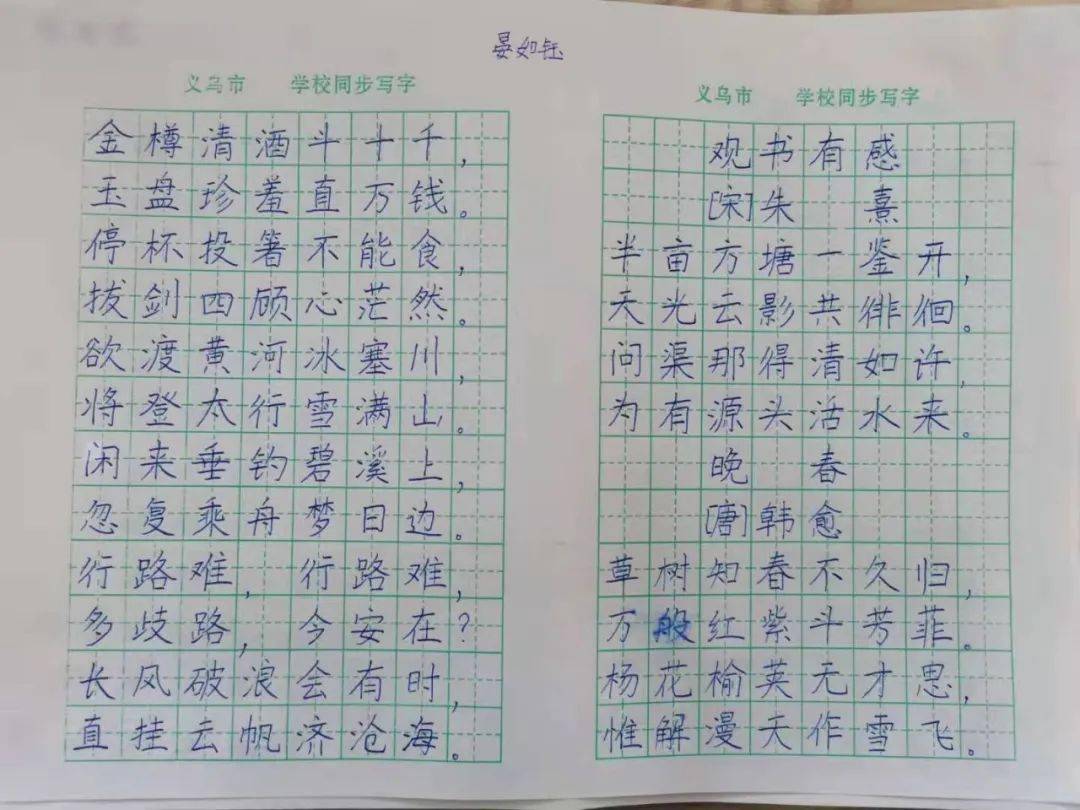 晏如钰
义乌市 学校同步写字
金樽清酒斗十千，
玉盘珍羞直万钱。
停杯投箸不能食，
拔剑四顾心茫然。
欲渡黄河冰塞川，
将登太行雪满山。
闲来垂钓碧溪上，
忽复乘舟梦日边。
行路难，行路难，
多歧路，今安在？
长风破浪会有时，
直挂云帆济沧海。
义乌市 学校同步写字
观书有感
[宋]朱 熹
半亩方塘一鉴开，
天光云影共徘徊。
问渠那得清如许，
为有源头活水来。
晚 春
[唐]韩愈
草树知春不久归，
万般红紫斗芳菲。
杨花榆英无才思，
惟解漫天作雪飞。